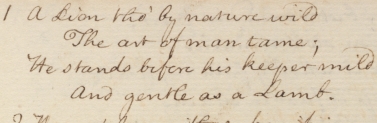 1 A Lion tho' by nature wild
The art of man can tame;
He stands before his keeper mild
And gentle as a Lamb.